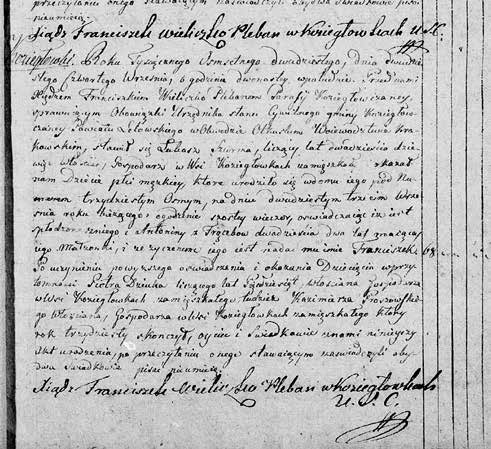 przeczytaniu onego stawaiącym
nieumieią
Xiądz Franciszek Wieliczko Pleban w Koziegłowkach U.S.C.
Roku Tysiącznego Osmsetnego dwudziestego, dnia dwudzie
stego Czwartego Września, o godzinie dwunastey w południe. Przed nami
Xiędzem Franciszkiem Wieliczko Plebanem Parafij Koziegłowczaney
sprawuiącym Obowiązki Urzędnika stanu Cywilnego gminy Koziegłow
czaney Powiatu Lelowskiego w Obwodzie Olkuskim Woiewodztwie Kra
kowskim, stawił się Juliasz liczący lat dwadzieścia dzie
więć włościan, Gospodarz w Wsi Koziegłowkach zamięszkały okazał
nam Dziecie płci męzkiey, ktore urodziło się w domu iego pod Nu
merem trzydziestym Osmym, na dniu dwudziestym trzecim Wrze
śnia roku bieżącego o godzinie szostey wieczor, oświadczaiąc iż iest
spłodzone z niego i Antoniny z dwadzieścia dwa lat maiącey
iego Małżonki, i że życzeniem iego iest nadać mu imie Franciszek
Po uczynieniu powyższego oświadczenia i okazania Dziecięcia w przy
tomności Piotra liczącego lat Pięćdziesiąt, włościana Gospodarza
w Wsi Koziegłowkach zamięszkałego tudzież Kazimierza
go włościana, Gospodarza w Wsi Koziegłowkach zamięszkałego ktory
rok trzydziesty skończył, oyciec i Świadkowie z nami ninieyszy
Akt urodzenia, po przeczytaniu onego stawaiącym oby
dwa Świadkowie pisać nieumieią
Xiądz Franciszek Wieliczko Pleban w Koziegłowkach
U.S.C.